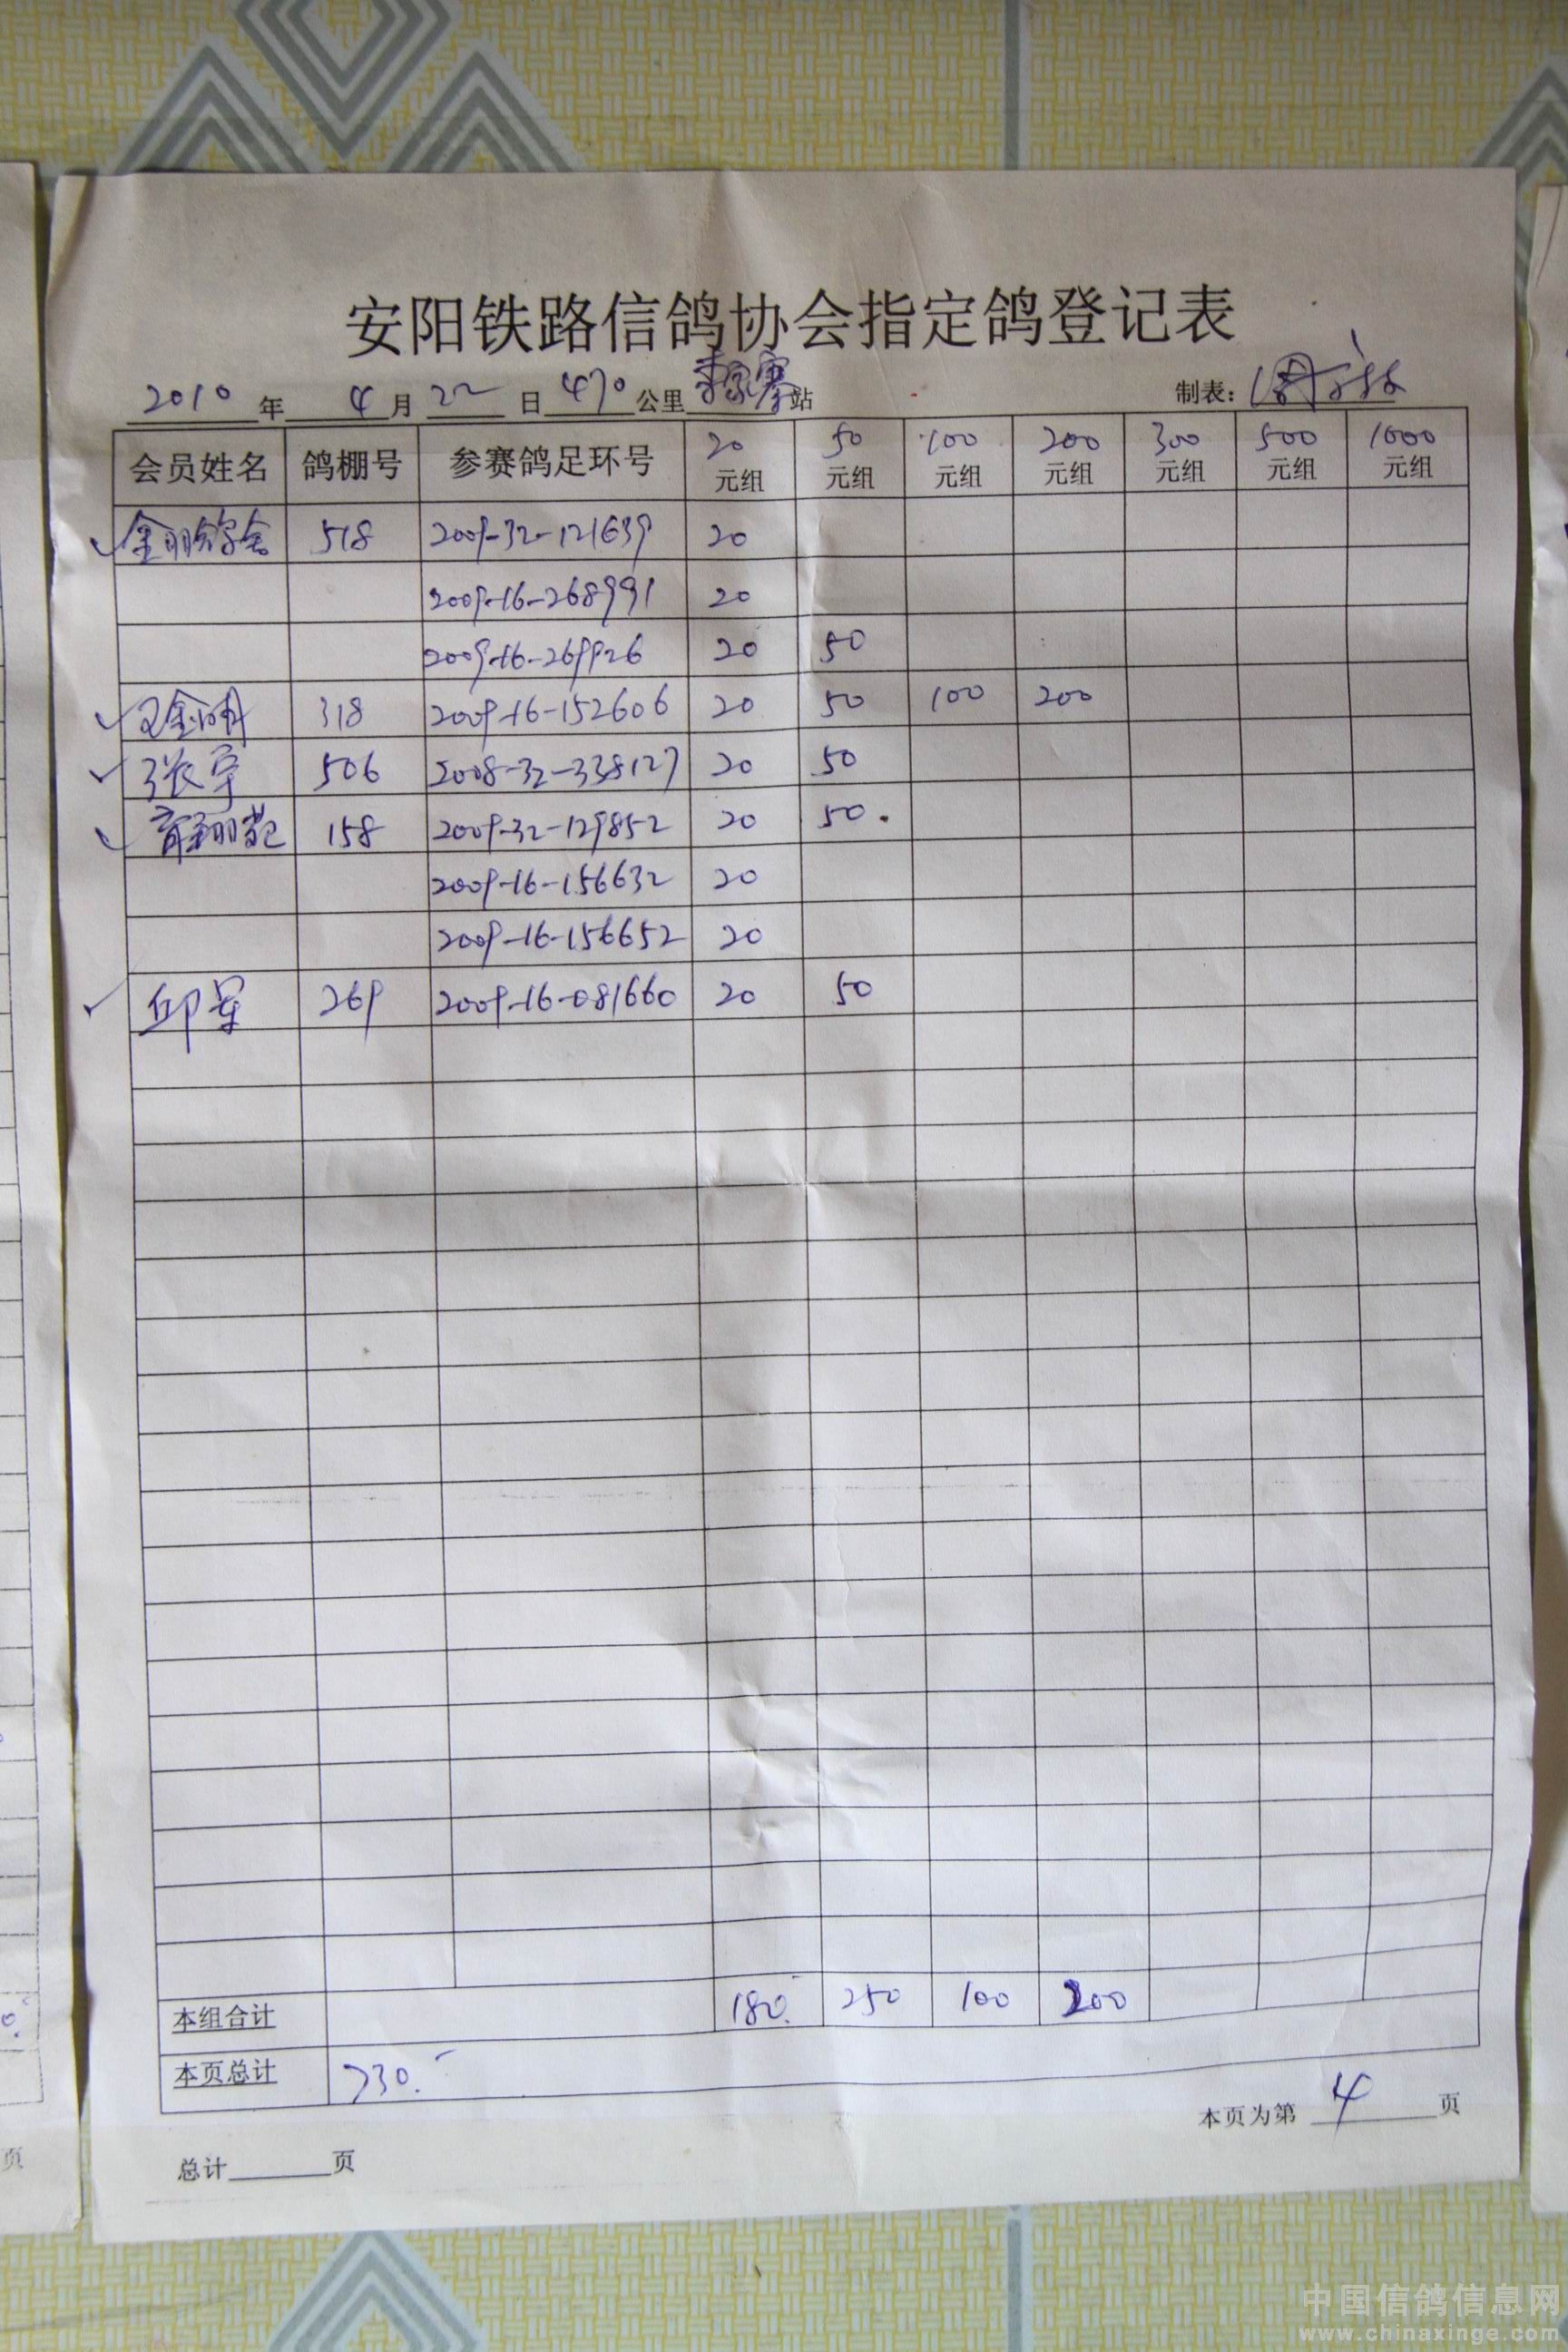 安阳铁路信鸽协会指定鸽登记表
2010 年 4 月 22 日 470 公里 李家寨 站 制表:
会员姓名 鸽棚号 参赛鸽足环号 20元组 50元组 100元组 200元组 300元组 500元组 1000元组
金翔鸽舍 518 2009-32-121639 20
2009-16-268991 20
2009-16-269926 20 50
318 2009-16-152606 20 50 100 200
张宇 506 2008-32-338127 20 50
158 2009-32-129852 20 50.
2009-16-156632 20
2009-16-156652 20
邱军 269 2009-16-081660 20 50
本组合计 180. 250 100 200
本页总计 730.-
本页为第 4 页
总计 页
页
中国信鸽信息网
www.chinaxinge.com